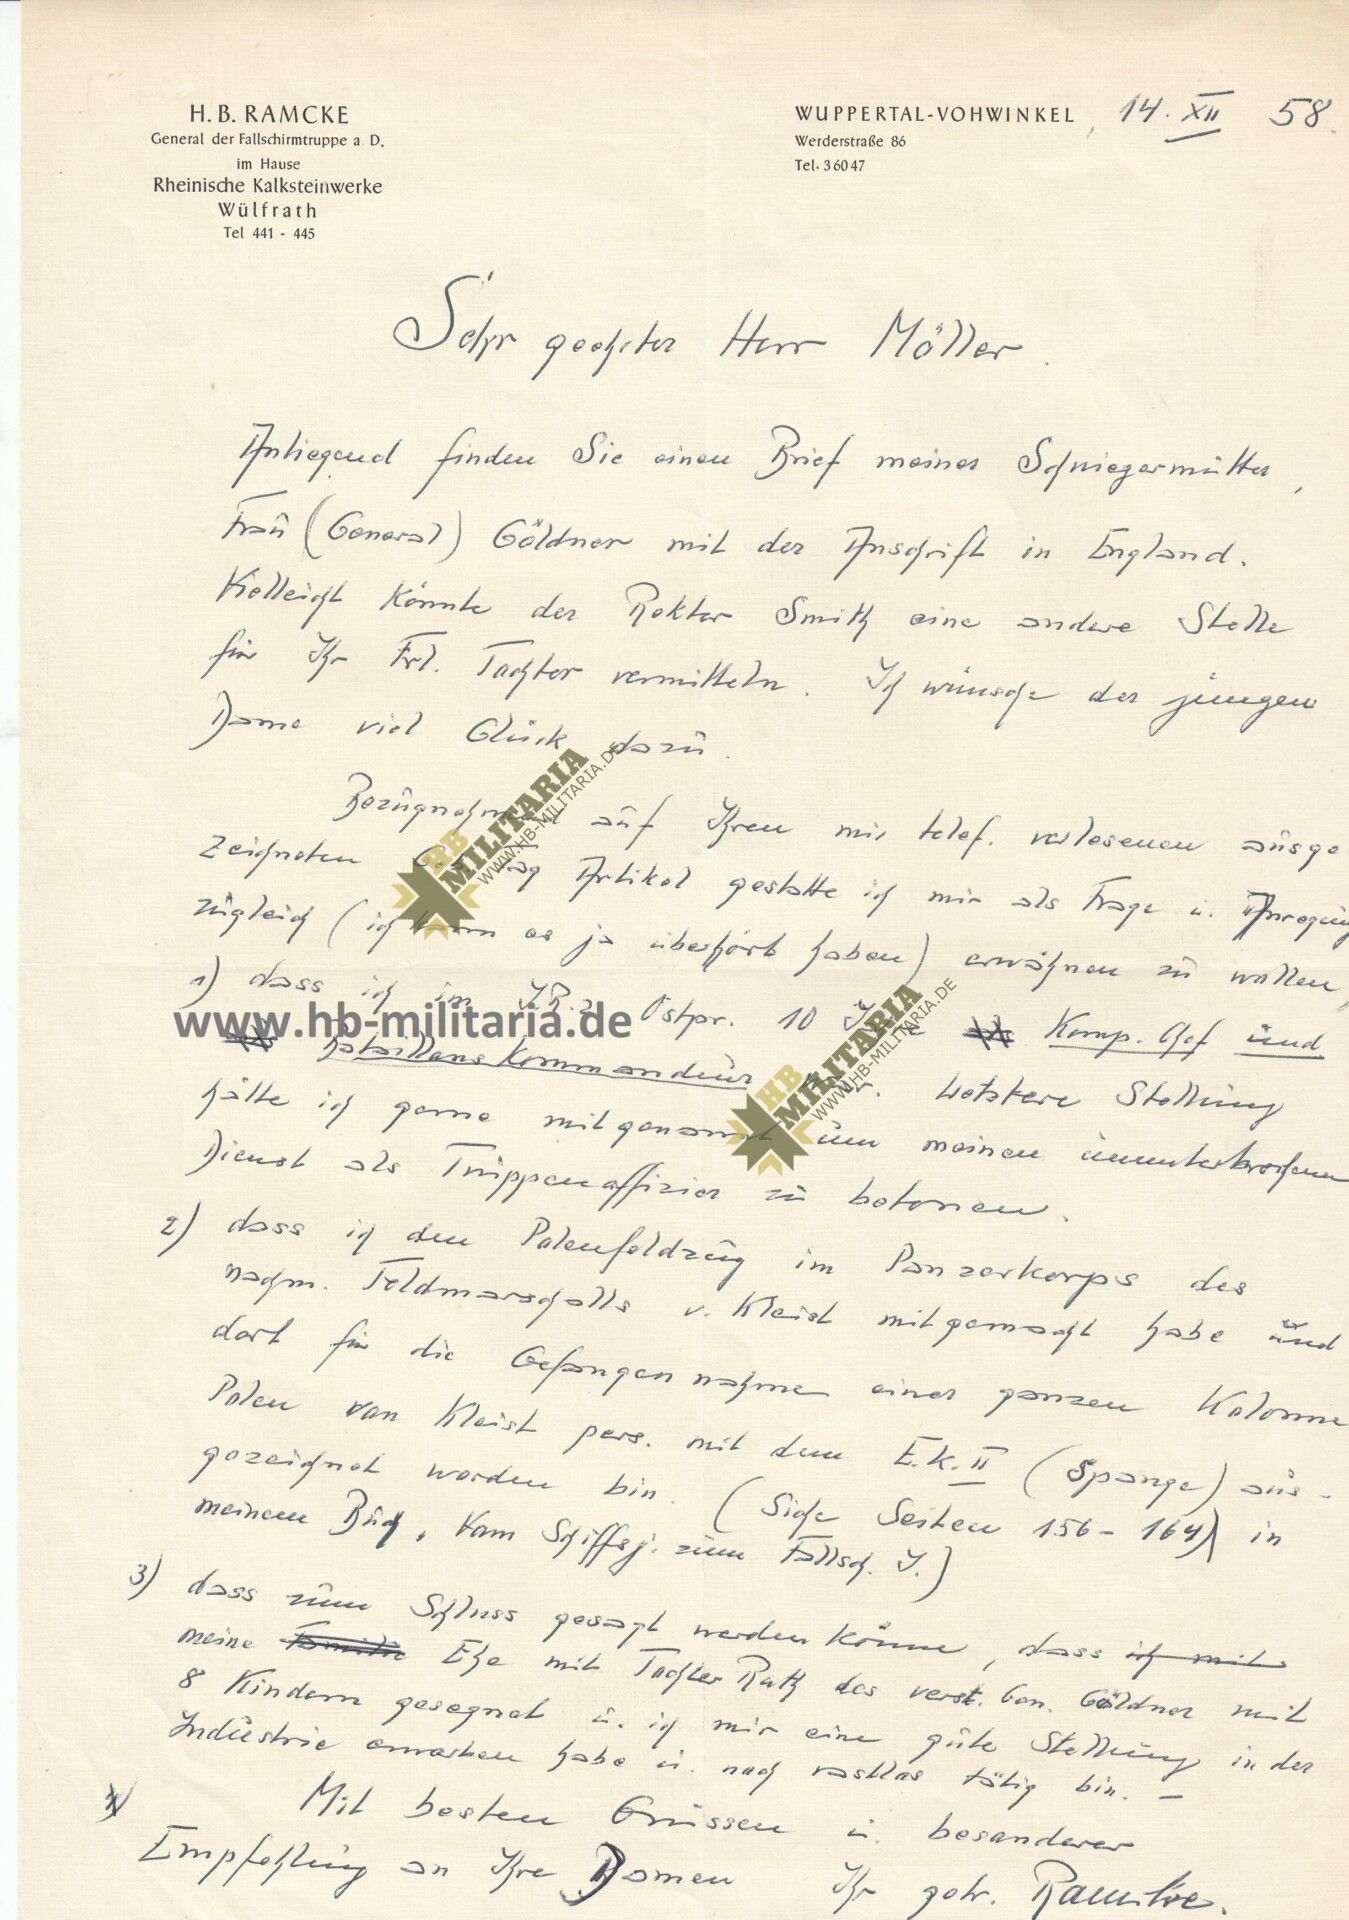 H. B. RAMCKE
General der Fallschirmtruppe a. D.
im Hause
Rheinische Kalksteinwerke
Wülfrath
Tel 441 - 445
WUPPERTAL-VOHWINKEL, 14. XII 58.
Werderstraße 86
Tel. 36047
Sehr geehrter Herr Möller.
Anliegend finden Sie einen Brief meiner Schwiegermutter,
Frau (General) Göldner mit der Anschrift in England.
Vielleicht könnte der Rektor Smith eine andere Stelle
für Ihr Frl. Tochter vermitteln. Ich wünsche der jungen
Dame viel Glück dazu.
Bezugnehmend auf Ihren mir telef. verlesenen ausge
zeichneten Artikel gestatte ich mir als Frage u. Anregung
zugleich (ich kann es ja überhört haben) erwähnen zu wollen,
1) dass ich im I.R. 2 Ostpr. 10 Jahre Komp. Chef und
Bataillonskommandeur war. Letztere Stellung
hätte ich gerne mitgenannt um meinen ununterbrochenen
Dienst als Truppenoffizier zu betonen.
2) dass ich den Polenfeldzug im Panzerkorps des
nachm. Feldmarschalls v. Kleist mitgemacht habe und
dort für die Gefangennahme einer ganzen Kolonne
Polen von Kleist pers. mit dem E.K. II (Spange) aus-
gezeichnet worden bin. (Siehe Seiten 156 - 164) in
meinem Buch, Vom Schiffsj. zum Fallsch. J.)
3) dass zum Schluss gesagt werden könne, dass ich mit
meine Familie Ehe mit Tochter Ruth des verst. Gen. Göldner mit
8 Kindern gesegnet u. ich mir eine gute Stellung in der
Industrie erworben habe u. noch rastlos tätig bin. -
Mit besten Grüssen u. besonderer
Empfehlung an Ihre Damen Ihr gehr. Ramcke.
HB MILITARIA
WWW.HB-MILITARIA.DE
www.hb-militaria.de
HB MILITARIA
WWW.HB-MILITARIA.DE